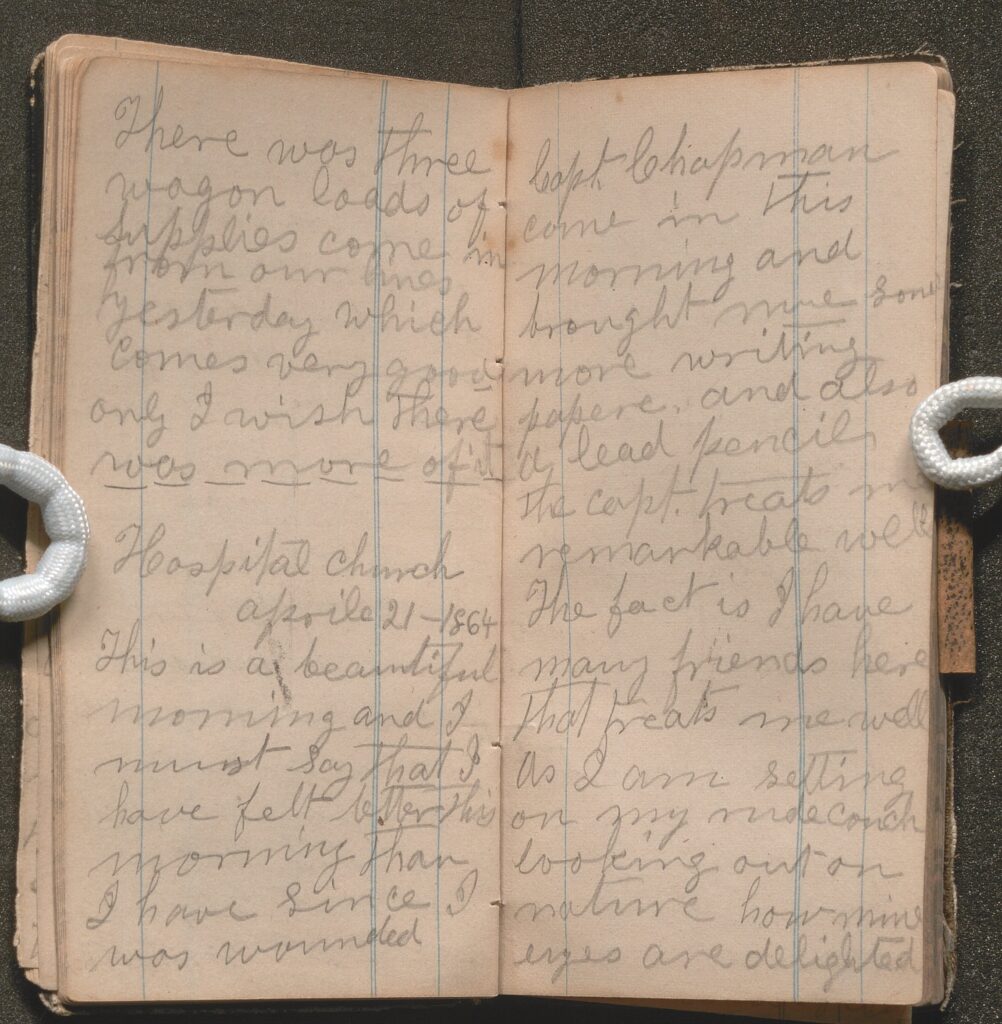 There was three
wagon loads of
supplies come in
from our lines
yesterday which
comes very good
only I wish there
was more of it
Hospital church
aprile 21-1864
This is a beautiful
morning and I
must say that I
have felt better this
morning than
I have since I
was wounded
Capt. Chapman
come in this
morning and
brought mee some
more writing
papere. and also
a lead pencil
the capt. treats me
remarkable well
The fact is I have
many friends here
that treats me well
As I am setting
on my rude couch
looking out on
nature how mine
eyes are delighted